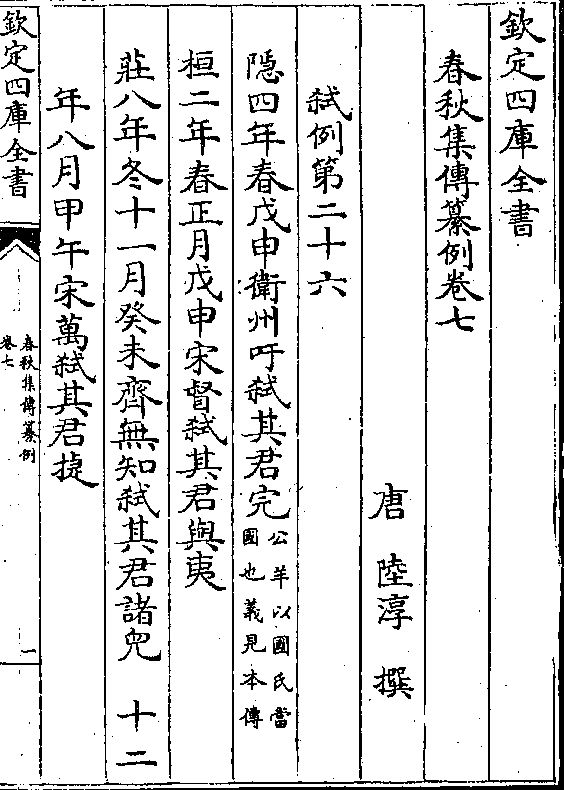 欽定四庫全書
春秋集傳纂例卷七
唐 陸淳 撰
弑例第二十六
隱四年春戊申衛州吁弑其君完公羊以國氏當國也義見本傳
桓二年春正月戊申宋督弑其君與夷
莊八年冬十一月癸未齊無知弑其君諸兒 十二
年八月甲午宋萬弑其君捷
欽定四庫全書
春秋集傳纂例
卷七
一